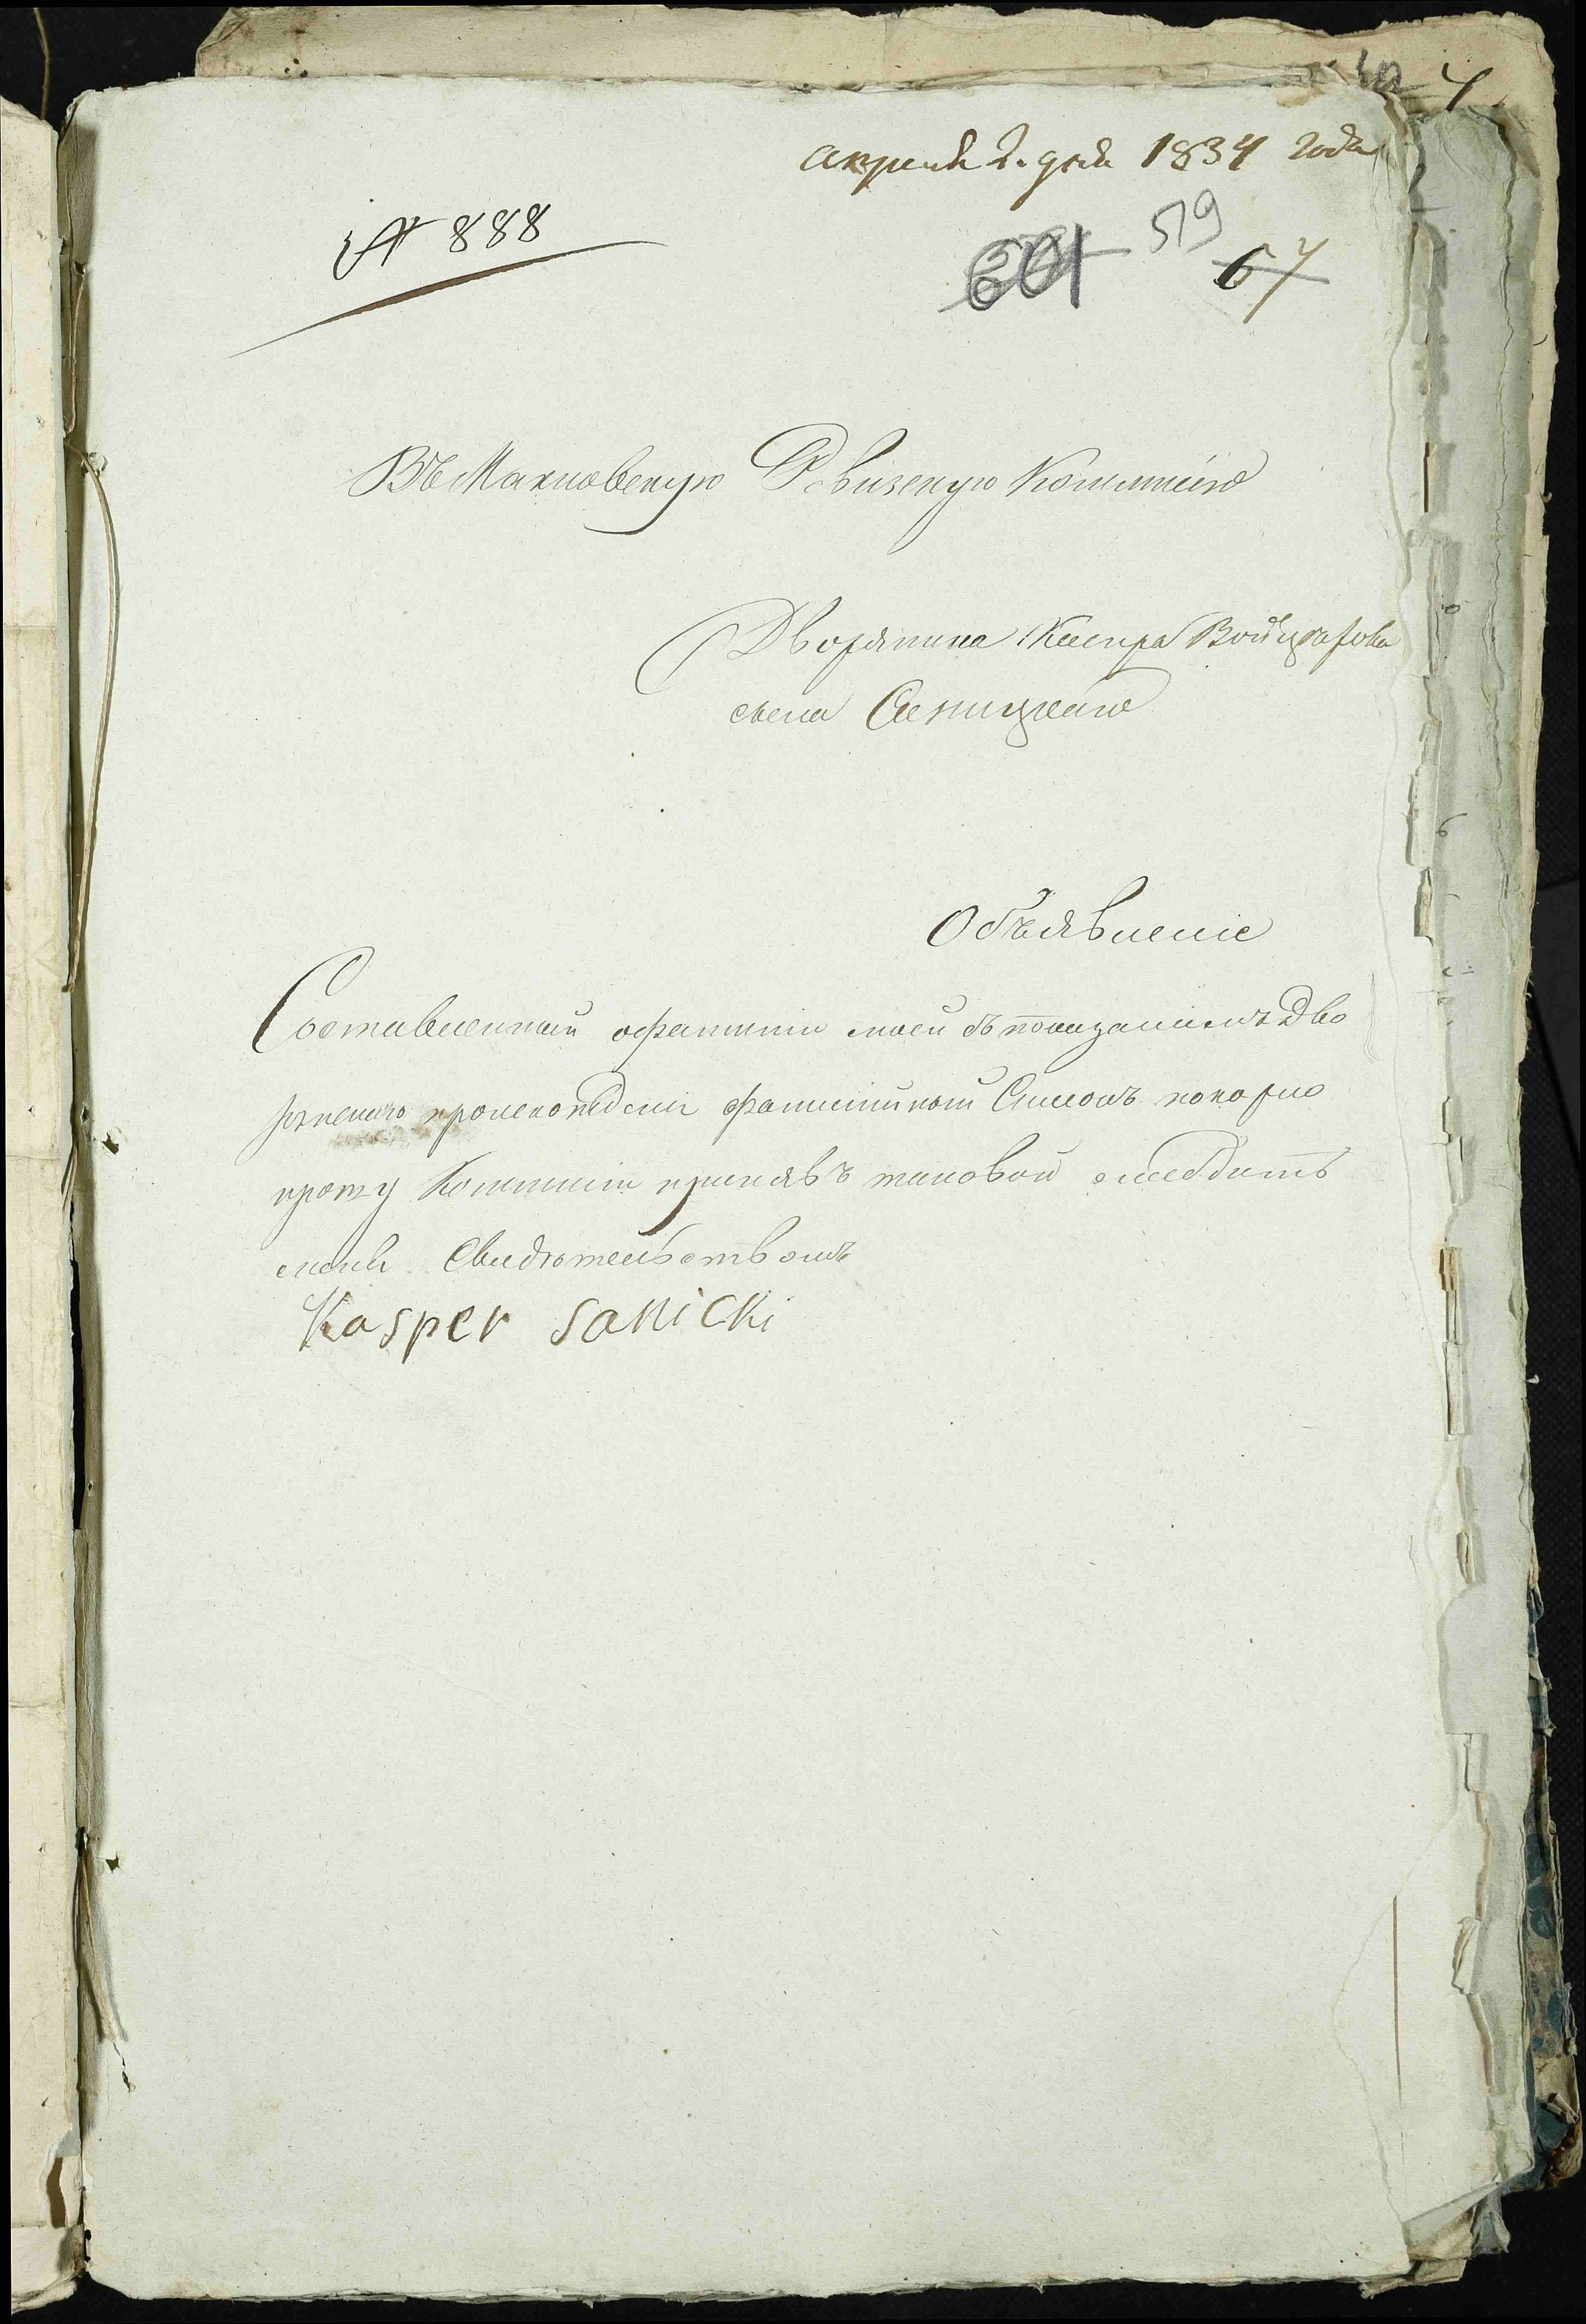 4
апреля 2. дня 1834 года
№ 888
601 519
67
Въ Махновскую Ревизскую Коммисію
Дворянина Каспра Войцѣхова
сына Саницкаго
Объявленіе
Составленный о фамиліи моей съ показаніемъ Дво
рянскаго происхожденія фамилійный Списокъ покорно
прошу Коммисію принявъ таковой снабдить
меня Свидѣтельствомъ
Kasper Sanicki